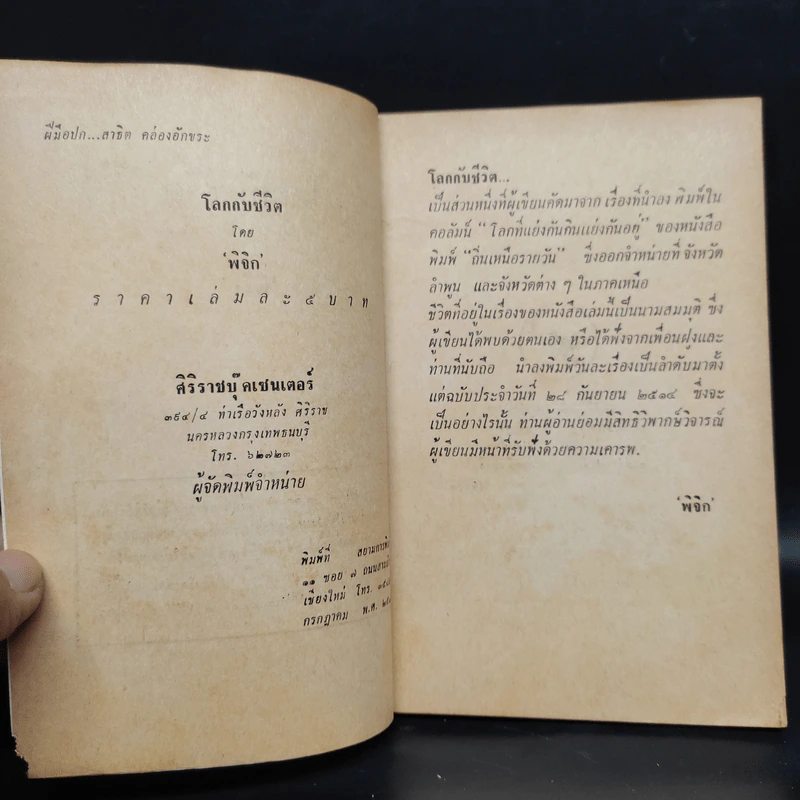 ฝีมือปก...สาธิต คล่องอักขระ
โลกกับชีวิต
โดย
'พิจิก'
ราคาเล่มละ ๕ บาท
ศิริราชบุ๊คเซนเตอร์
๓๙๔/๔ ท่าเรือวังหลัง ศิริราช
นครหลวงกรุงเทพธนบุรี
โทร. ๖๒๗๒๓
ผู้จัดพิมพ์จำหน่าย
พิมพ์ที่ สยามการพิ
๑๑ ซอย ๗ ถนน
เชียงใหม่ โทร.
กรกฎาคม พ.ศ.
โลกกับชีวิต...
เป็นส่วนหนึ่งที่ผู้เขียนคัดมาจาก เรื่องที่นำลง พิมพ์ใน
คอลัมน์ "โลกที่แย่งกันกินแย่งกันอยู่" ของหนังสือ
พิมพ์ "ถิ่นเหนือรายวัน" ซึ่งออกจำหน่ายที่ จังหวัด
ลำพูน และจังหวัดต่าง ๆ ในภาคเหนือ
ชีวิตที่อยู่ในเรื่องของหนังสือเล่มนี้เป็นนามสมมุติ ซึ่ง
ผู้เขียนได้พบด้วยตนเอง หรือได้ฟังจากเพื่อนฝูงและ
ท่านที่นับถือ นำลงพิมพ์วันละเรื่องเป็นลำดับมาตั้ง
แต่ฉบับประจำวันที่ ๒๘ กันยายน ๒๕๑๔ ซึ่งจะ
เป็นอย่างไรนั้น ท่านผู้อ่านย่อมมีสิทธิวิพากษ์วิจารณ์
ผู้เขียนมีหน้าที่รับฟังด้วยความเคารพ.
'พิจิก'